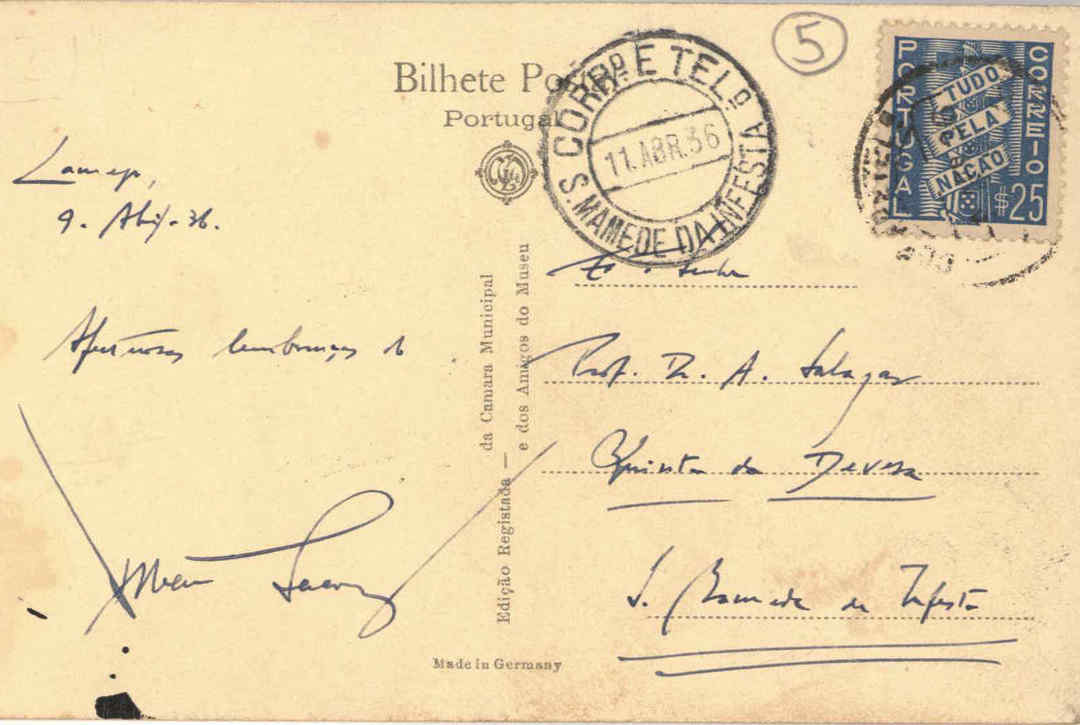 5
Bilhete Po
Portugal
CORRº. E TELº.
11.ABR.36
S. MAMEDE DA INFESTA
PORTUGAL
CORREIO
TUDO
PELA
NAÇÃO
$25
9. Abril-36.
Afectuosas lembranças do
Edição Registada — da Camara Municipal
e dos Amigos do Museu
Made in Germany
Prof. Dr. A. Salazar
Quinta da Devesa
S. Mamede de Infesta